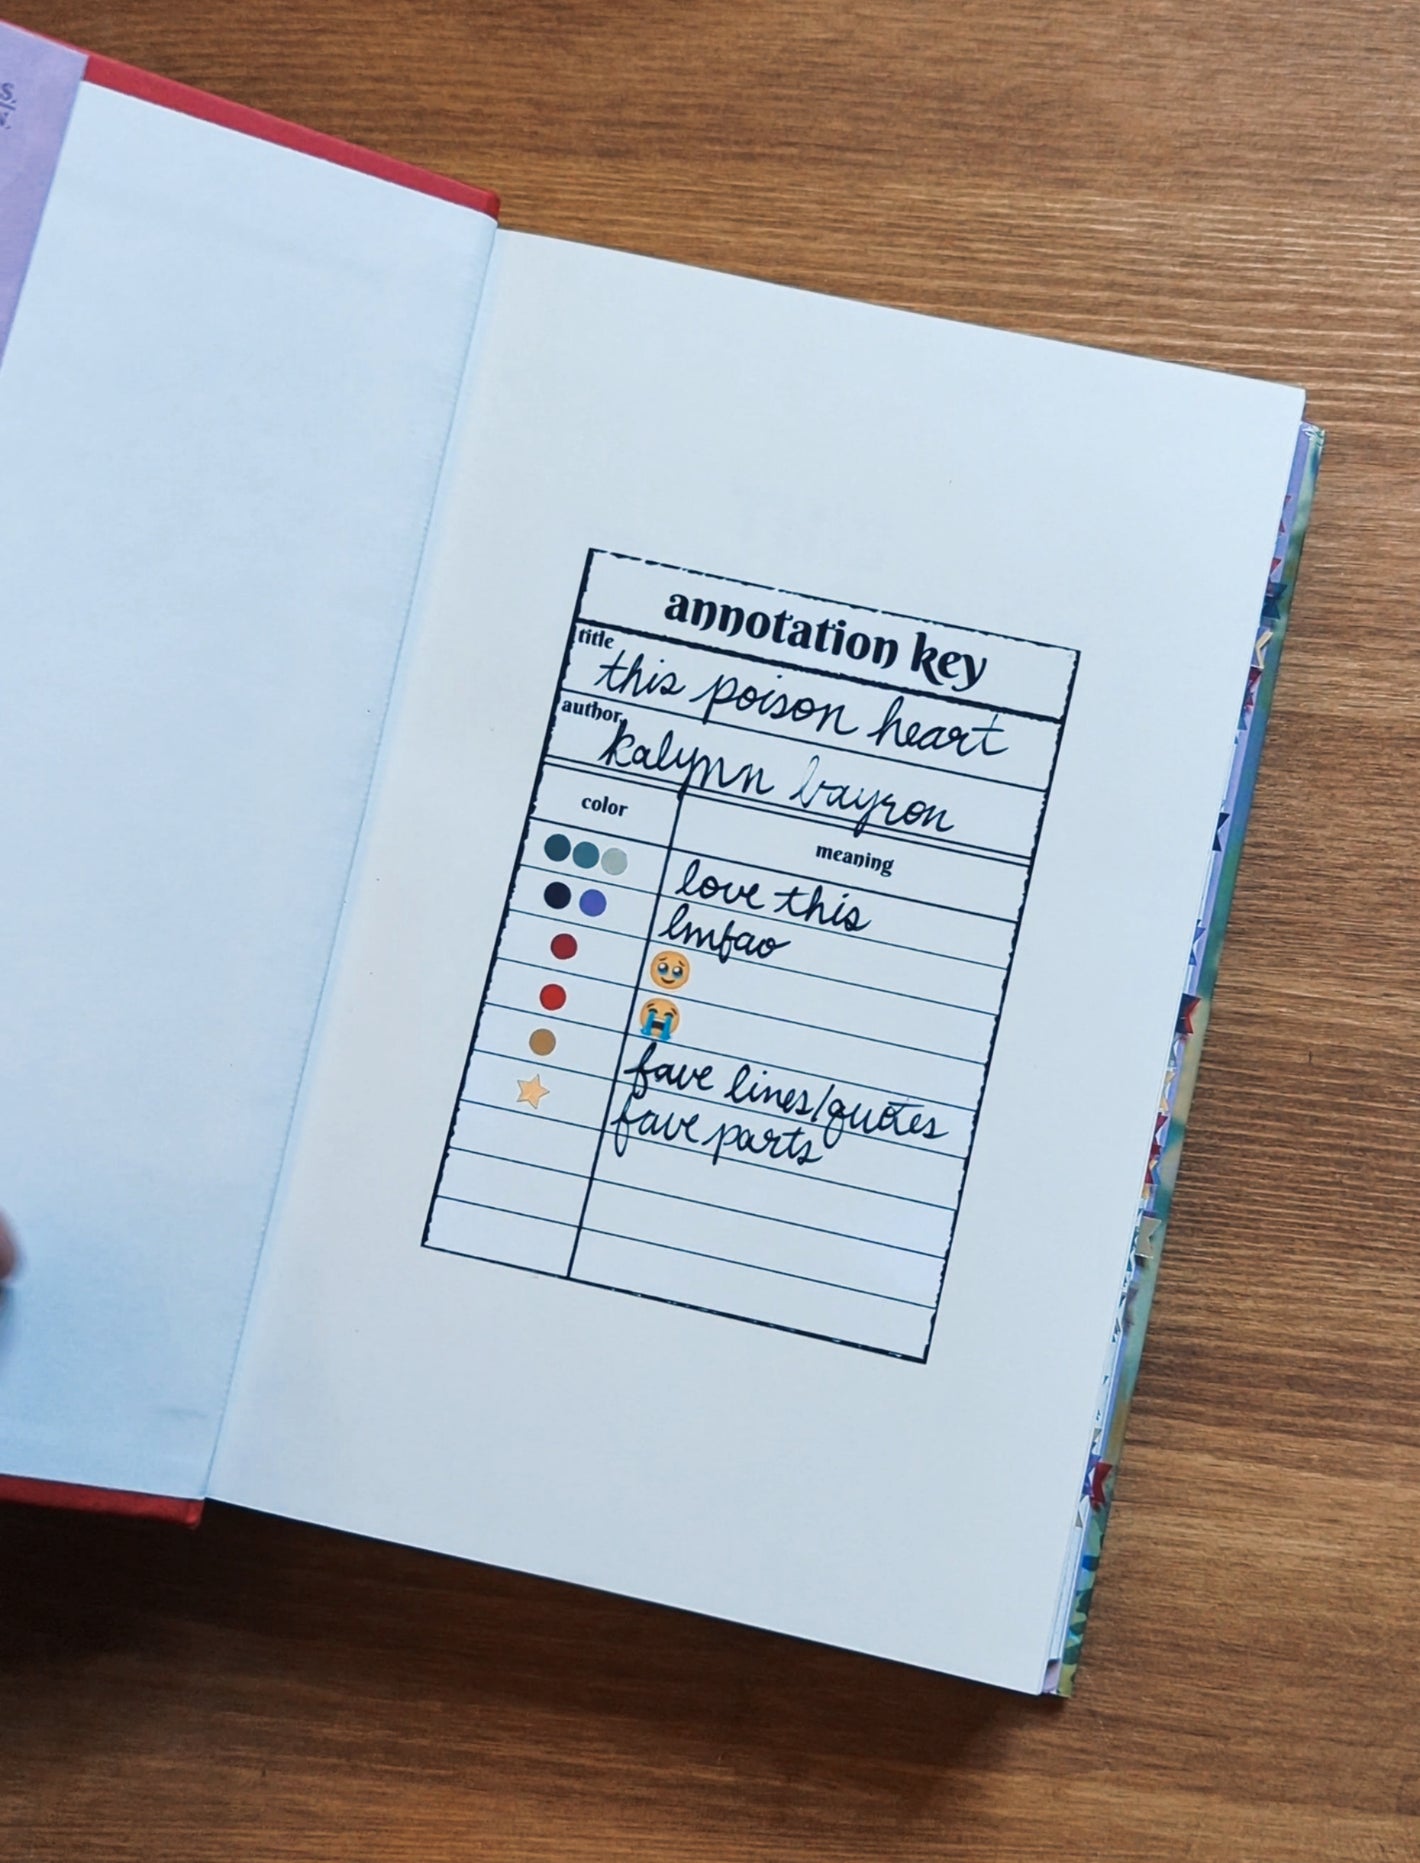 annotation key
title
this poison heart
author
kalynn bayron
color
meaning
love this
lmfao
🥹
😭
fave lines/quotes
fave parts